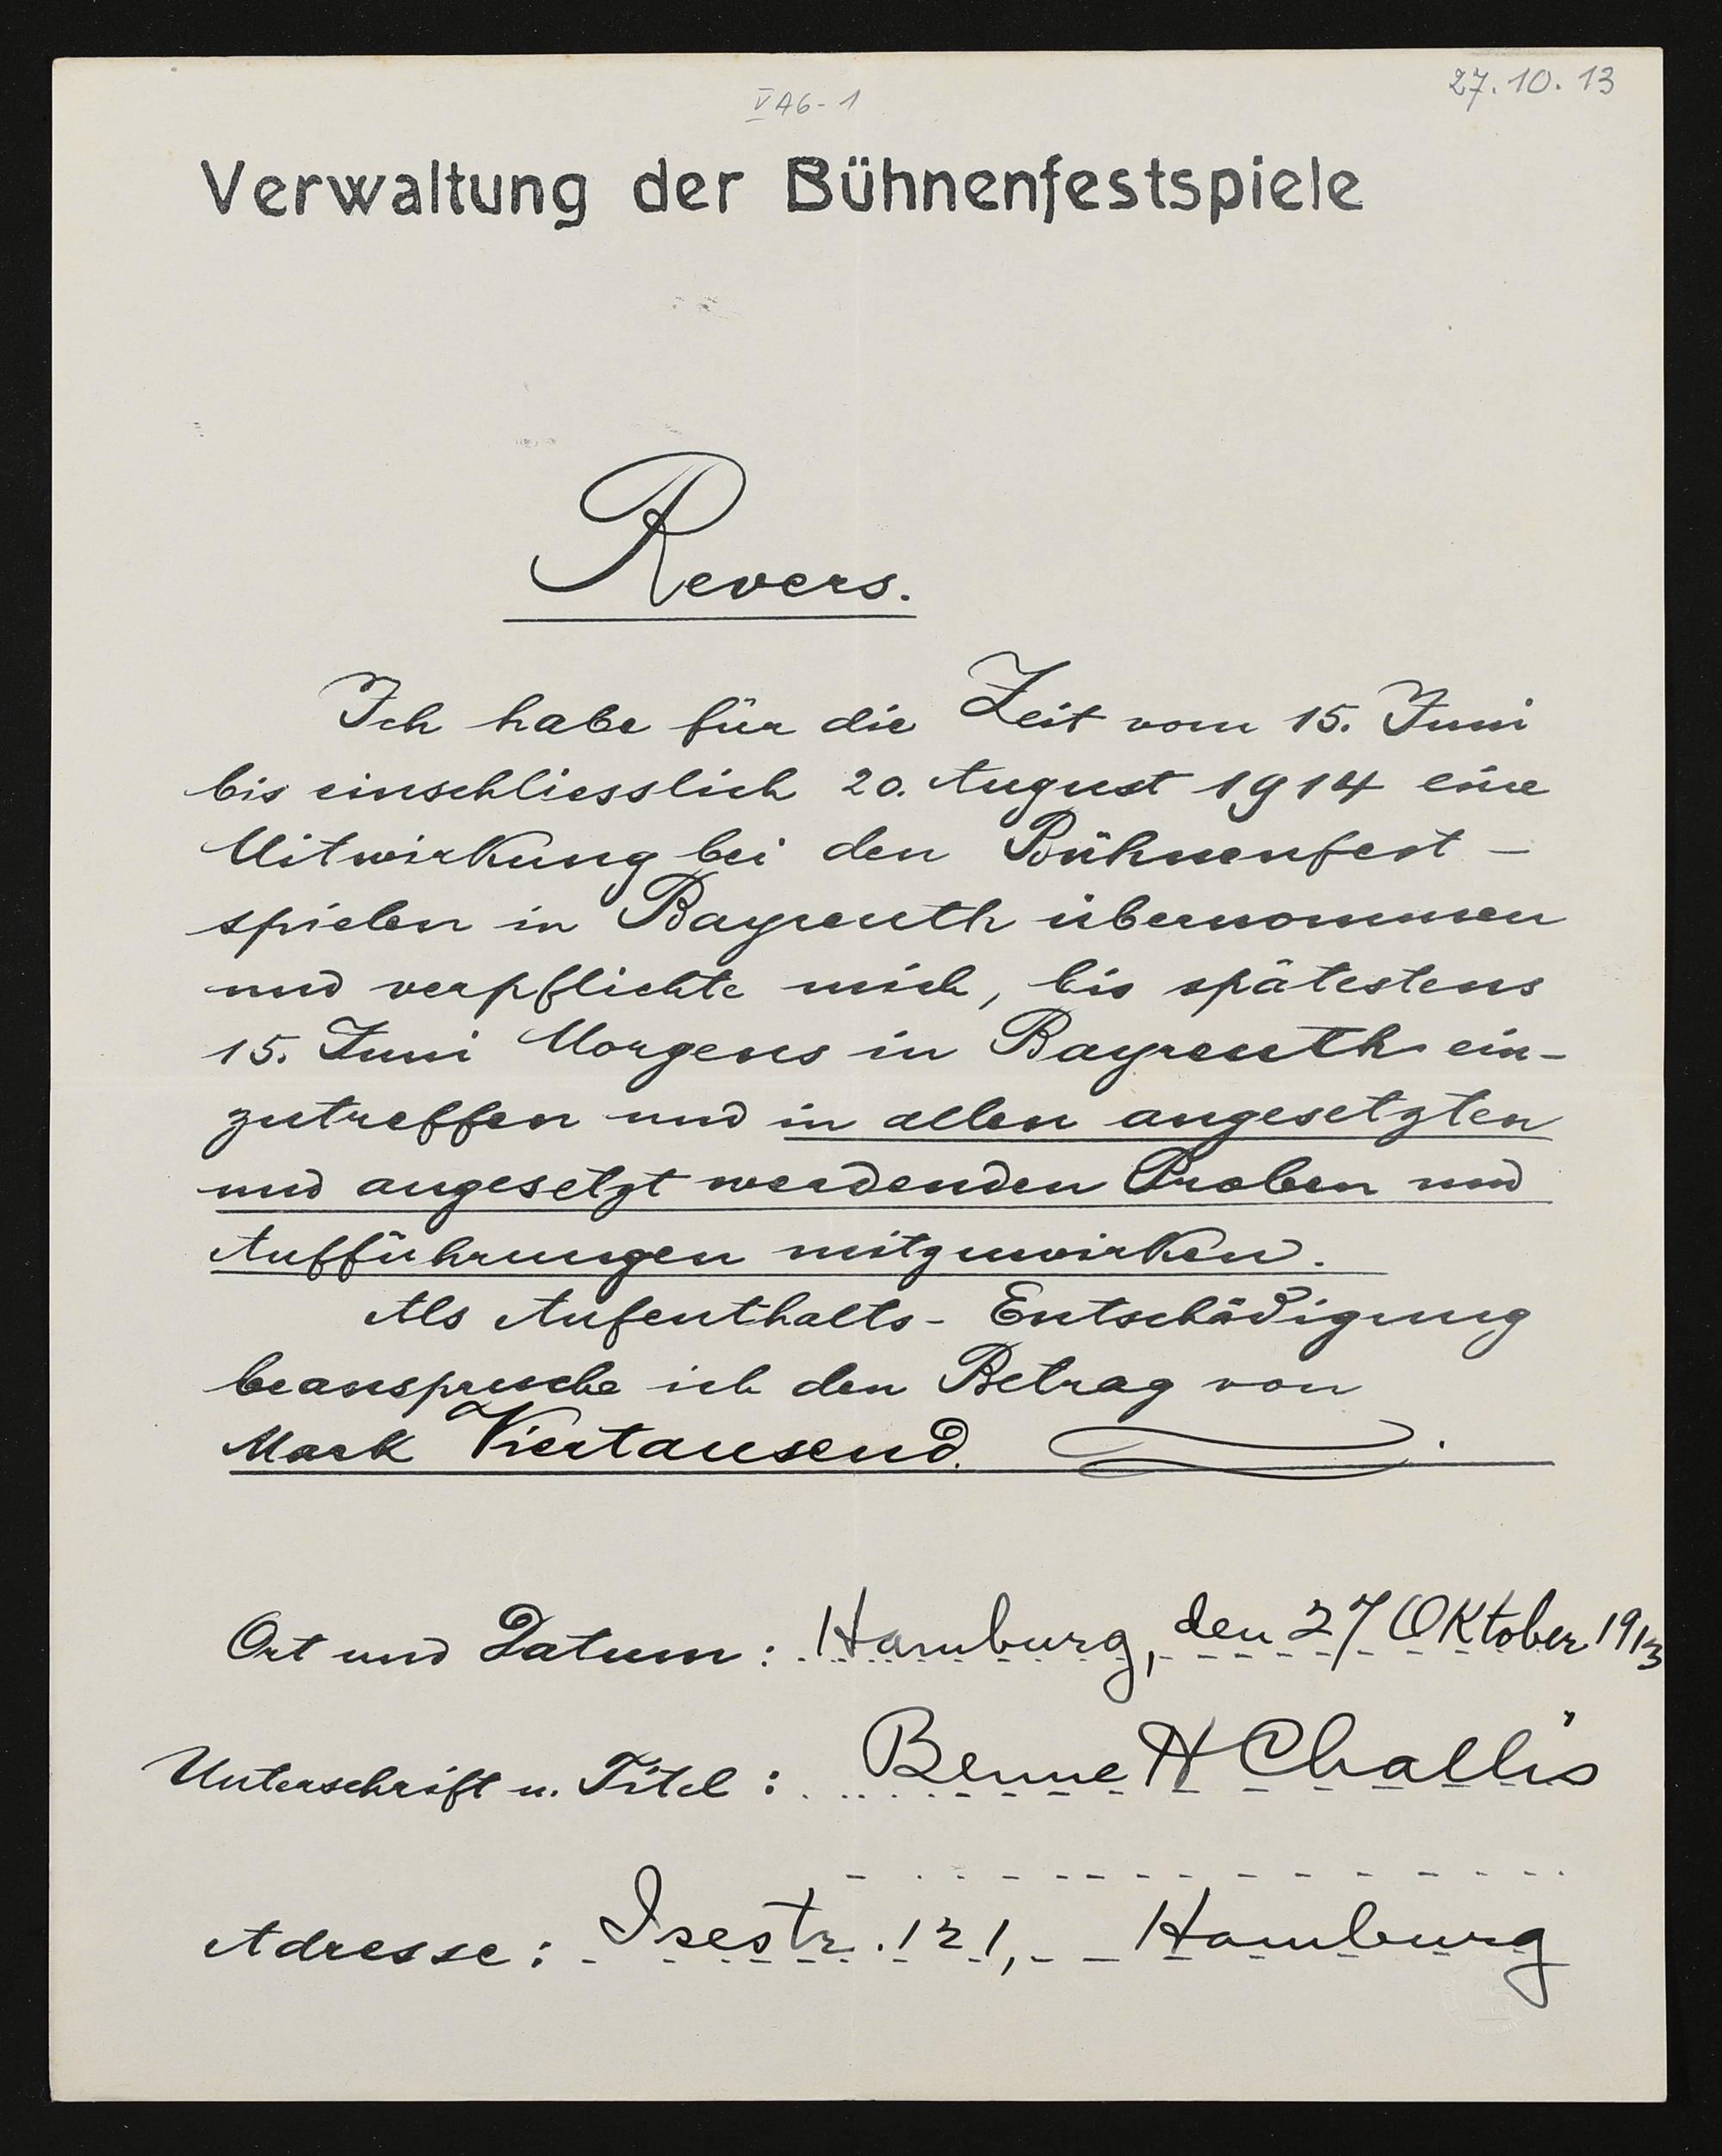 V A6-1
27.10.13
Verwaltung der Bühnenfestspiele
Revers.
Ich habe für die Zeit vom 15. Juni
bis einschliesslich 20. August 1914 eine
Mitwirkung bei den Bühnenfest-
spielen in Bayreuth übernommen
und verpflichte mich, bis spätestens
15. Juni Morgens in Bayreuth ein-
zutreffen und in allen angesetzten
und angesetzt werdenden Proben und
Aufführungen mitzuwirken.
Als Aufenthalts-Entschädigung
beanspruche ich den Betrag von
Mark Viertausend.
Ort und Datum: Hamburg, den 27 Oktober 1913
Unterschrift u. Titel: Benne H Challis
Adresse: Isestr. 121, Hamburg